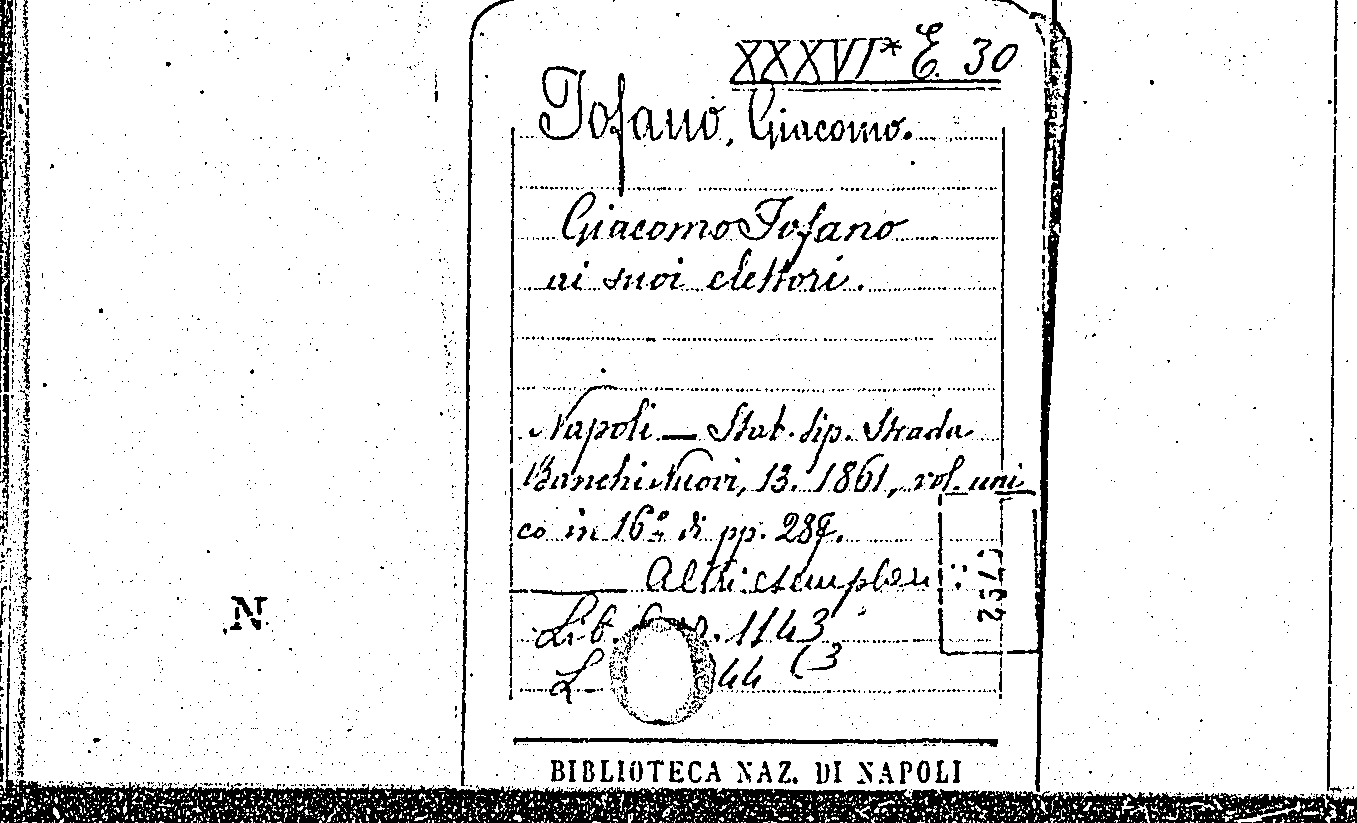 XXXVI* E. 30
Tofano, Giacomo.
Giacomo Tofano
ai suoi elettori.
Napoli — Stab. tip. Strada
Banchi Nuovi, 13. 1861, vol. uni
co in 16º di pp. 287.
Altri esemplari:
Lib. 1143
L 44 (3
N
BIBLIOTECA NAZ. DI NAPOLI